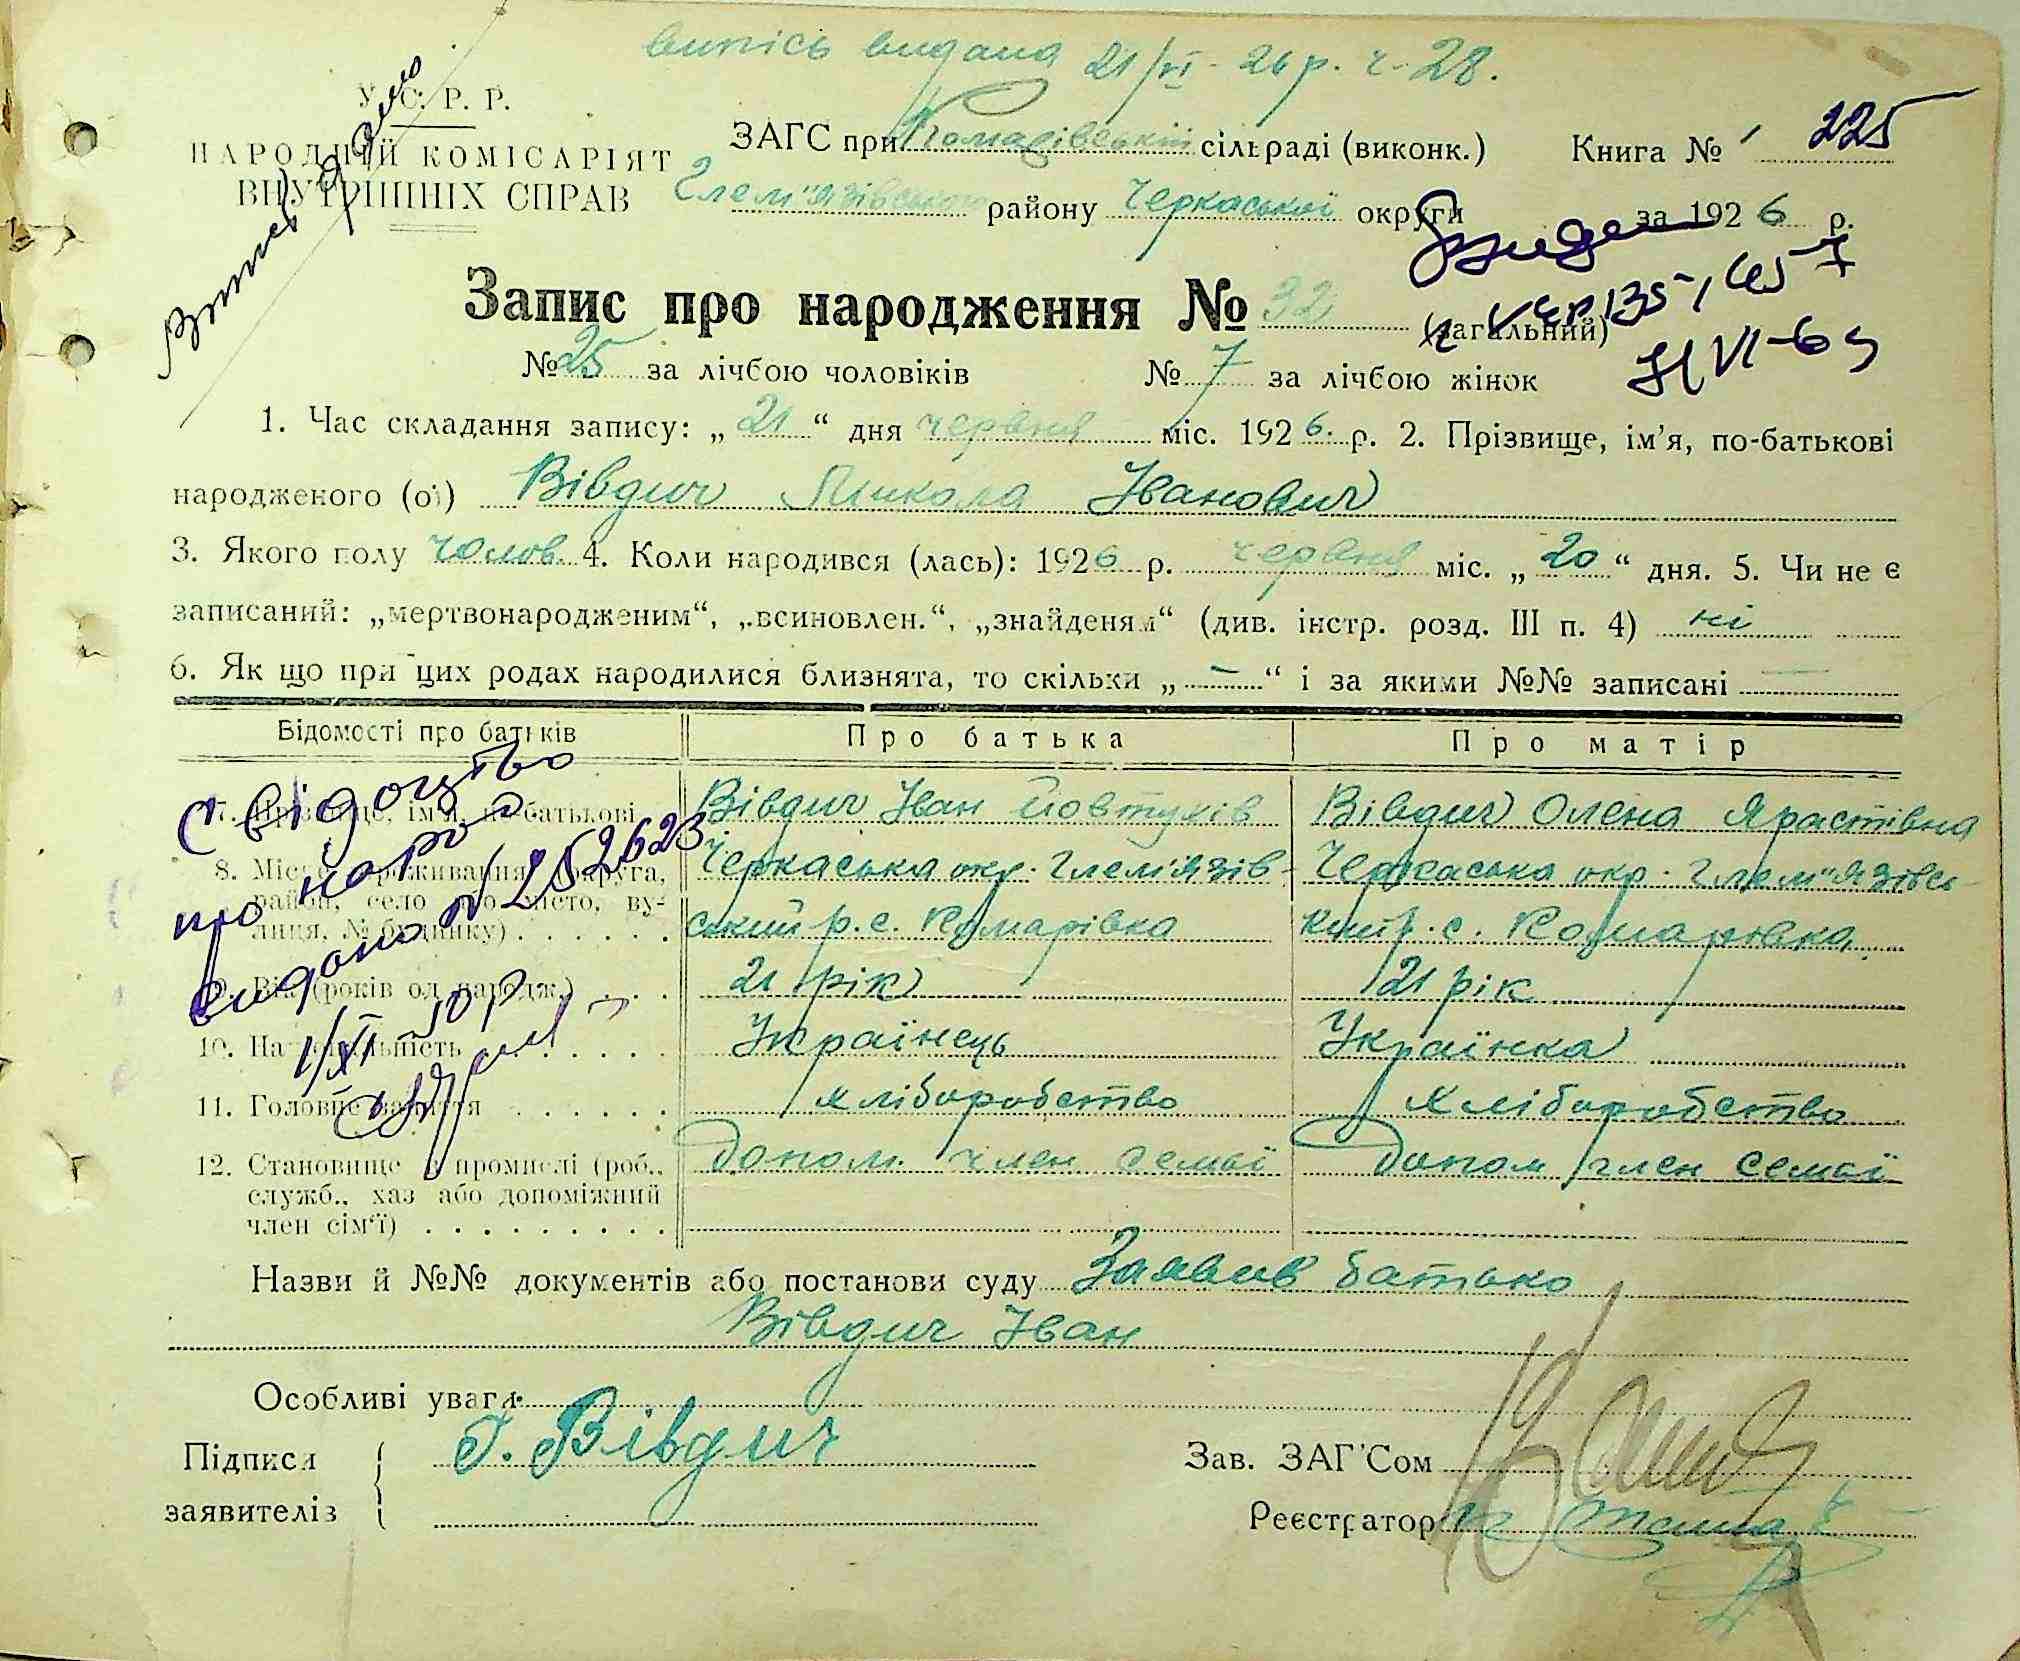 випісь видана 21/VI - 26 р. ч - 28.
У. С. Р. Р.
НАРОДНІЙ КОМІСАРІЯТ
ВНУТРІШНІХ СПРАВ
ЗАГС при Комарівській сільраді (виконк.) Книга № 1 225
Глем"язівського району Черкаської округи за 1926 р.
Запис про народження № 32 (загальний)
№ 25 за лічбою чоловіків № 7 за лічбою жінок
1. Час складання запису: „21“ дня червня міс. 1926. р. 2. Прізвище, ім’я, по-батькові
народженого (ої) Вівдич Микола Іванович
3. Якого полу чолов. 4. Коли народився (лась): 1926 р. червня міс. „20“ дня. 5. Чи не є
записаний: „мертвонародженим“, „всиновлен.“, „знайденям“ (див. інстр. розд. III п. 4) ні
6. Як що при цих родах народилися близнята, то скільки „—“ і за якими №№ записані —
Відомості про батьків Про батька Про матір
7. Прізвище, ім’я, по-батькові Вівдич Іван Йовтухів Вівдич Олена Ярастівна
8. Місце проживання (округа, Черкаська окр. Глем'язів- Черкаська окр. Глем"язівсь-
район, село або місто, ву-
лиця, № будинку) . . . . . . ський р. с. Комарівка кий р. с. Комарівка
9. Вік (років од народж.) . . . 21 рік 21 рік
10. Національність . . . . . Українець Українка
11. Головне заняття . . . . . . хліборобство хліборобство
12. Становище в промислі (роб., Допом. член семьї Допом член семьї
служб., хаз або допоміжний
член сім’ї) . . . . . . . . .
свідоцтво
про народ
видано № 252623
1/XI 50 р
Назви й №№ документів або постанови суду Заявив батько
Вівдич Іван
Особливі уваги
Підписи
заявителів
І. Вівдич
Зав. ЗАГС'ом
Реєстратор